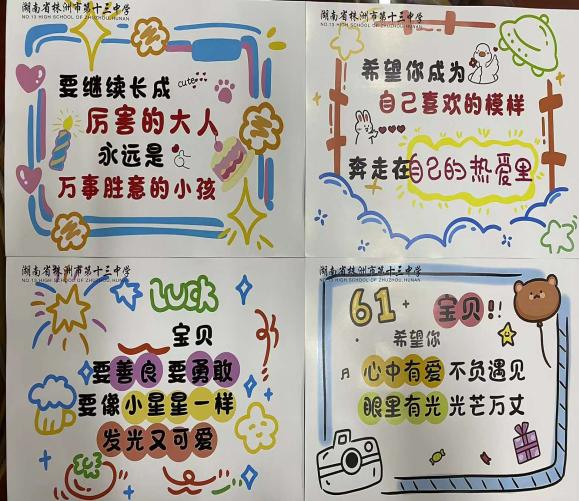 湖南省株洲市第十三中学
NO.13 HIGH SCHOOL OF ZHUZHOU,HUNAN
要继续长成
cute
厉害的大人
永远是
万事胜意的小孩
湖南省株洲市第十三中学
NO.13 HIGH SCHOOL OF ZHUZHOU,HUNAN
希望你成为
自己喜欢的模样
奔走在自己的热爱里
湖南省株洲市第十三中学
NO.13 HIGH SCHOOL OF ZHUZHOU,HUNAN
LUCK
宝贝
要善良 要勇敢
要像小星星一样
发光又可爱
湖南省株洲市第十三中学
NO.13 HIGH SCHOOL OF ZHUZHOU,HUNAN
61 宝贝!!
希望你
心中有爱 不负遇见
眼里有光 光芒万丈